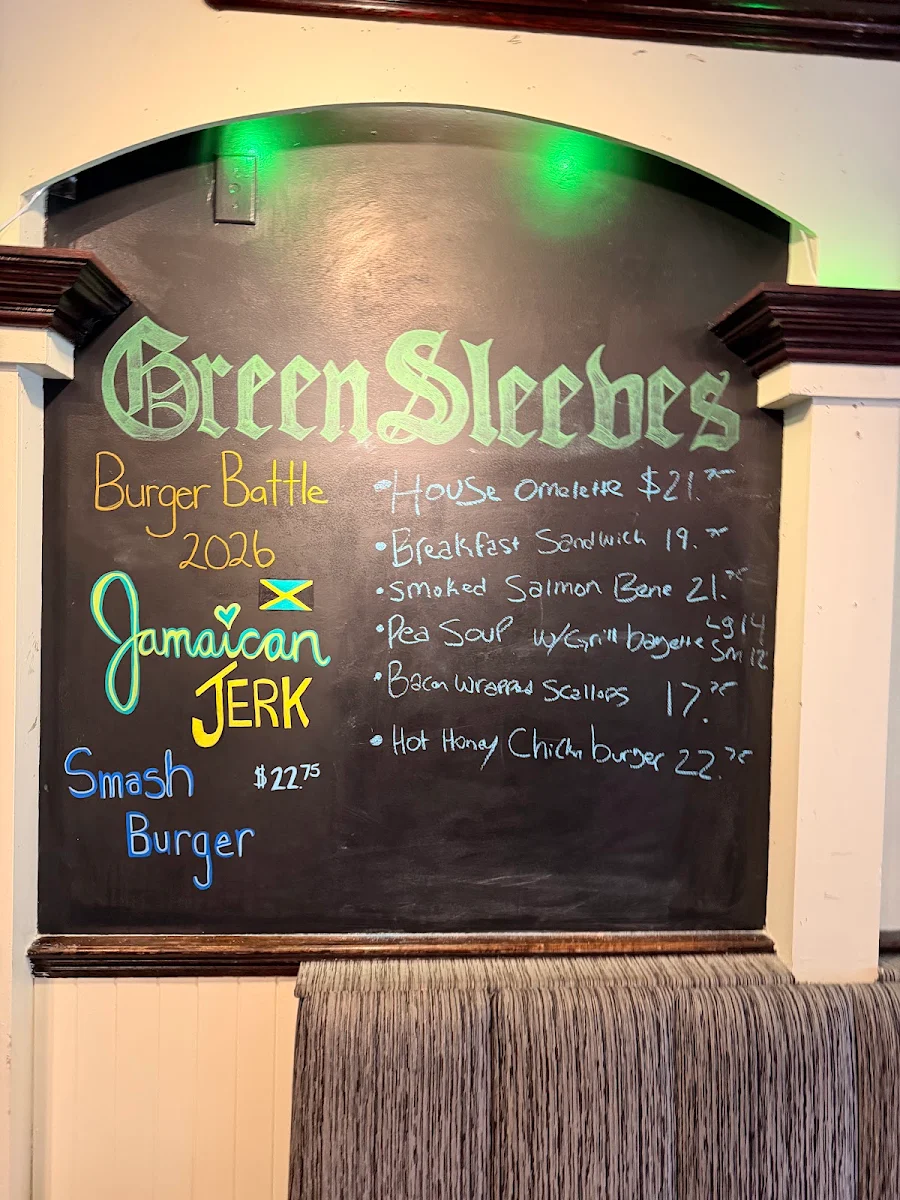 Green Sleeves
Burger Battle
2026
Jamaican
JERK
Smash
$22.75
Burger
• House Omelette $21.75
• Breakfast Sandwich 19.75
• Smoked Salmon Bene 21.75
• Pea Soup w/Grill bagette Lg 14
Sm 12
• Bacon Wrapped Scallops 17.75
• Hot Honey Chickn burger 22.75